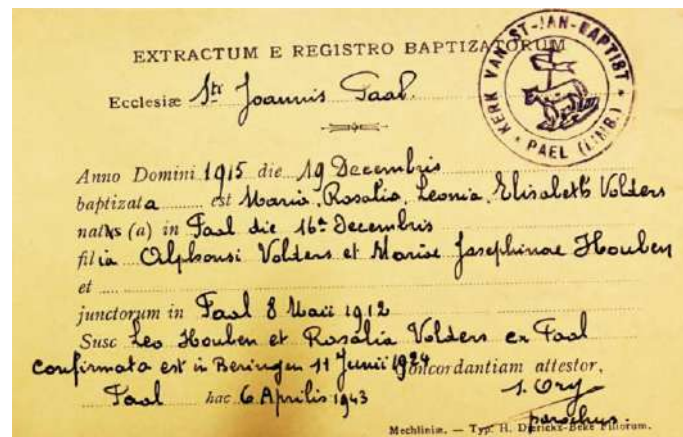 EXTRACTUM E REGISTRO BAPTIZATORUM
KERK VAN ST-JAN-BAPTIST * PAEL (LIMB.) *
Ecclesiæ Sti Joannis Paal.
Anno Domini 1915 die 19 Decembris
baptizata est Maria, Rosalia, Leonia, Elisabeth Volders
natus (a) in Paal die 16a Decembris
filia Alphonsi Volders et Mariae Josephinae Houben
et
junctorum in Paal 8 Maii 1912
Susc Leo Houben et Rosalia Volders ex Paal
Confirmata est in Beringen 11 Junii 1924 Concordantiam attestor,
Paal hac 6 Aprilis 1943 J. Ory
parochus.
Mechliniæ. — Typ. H. Dierickx-Beke Filiorum.